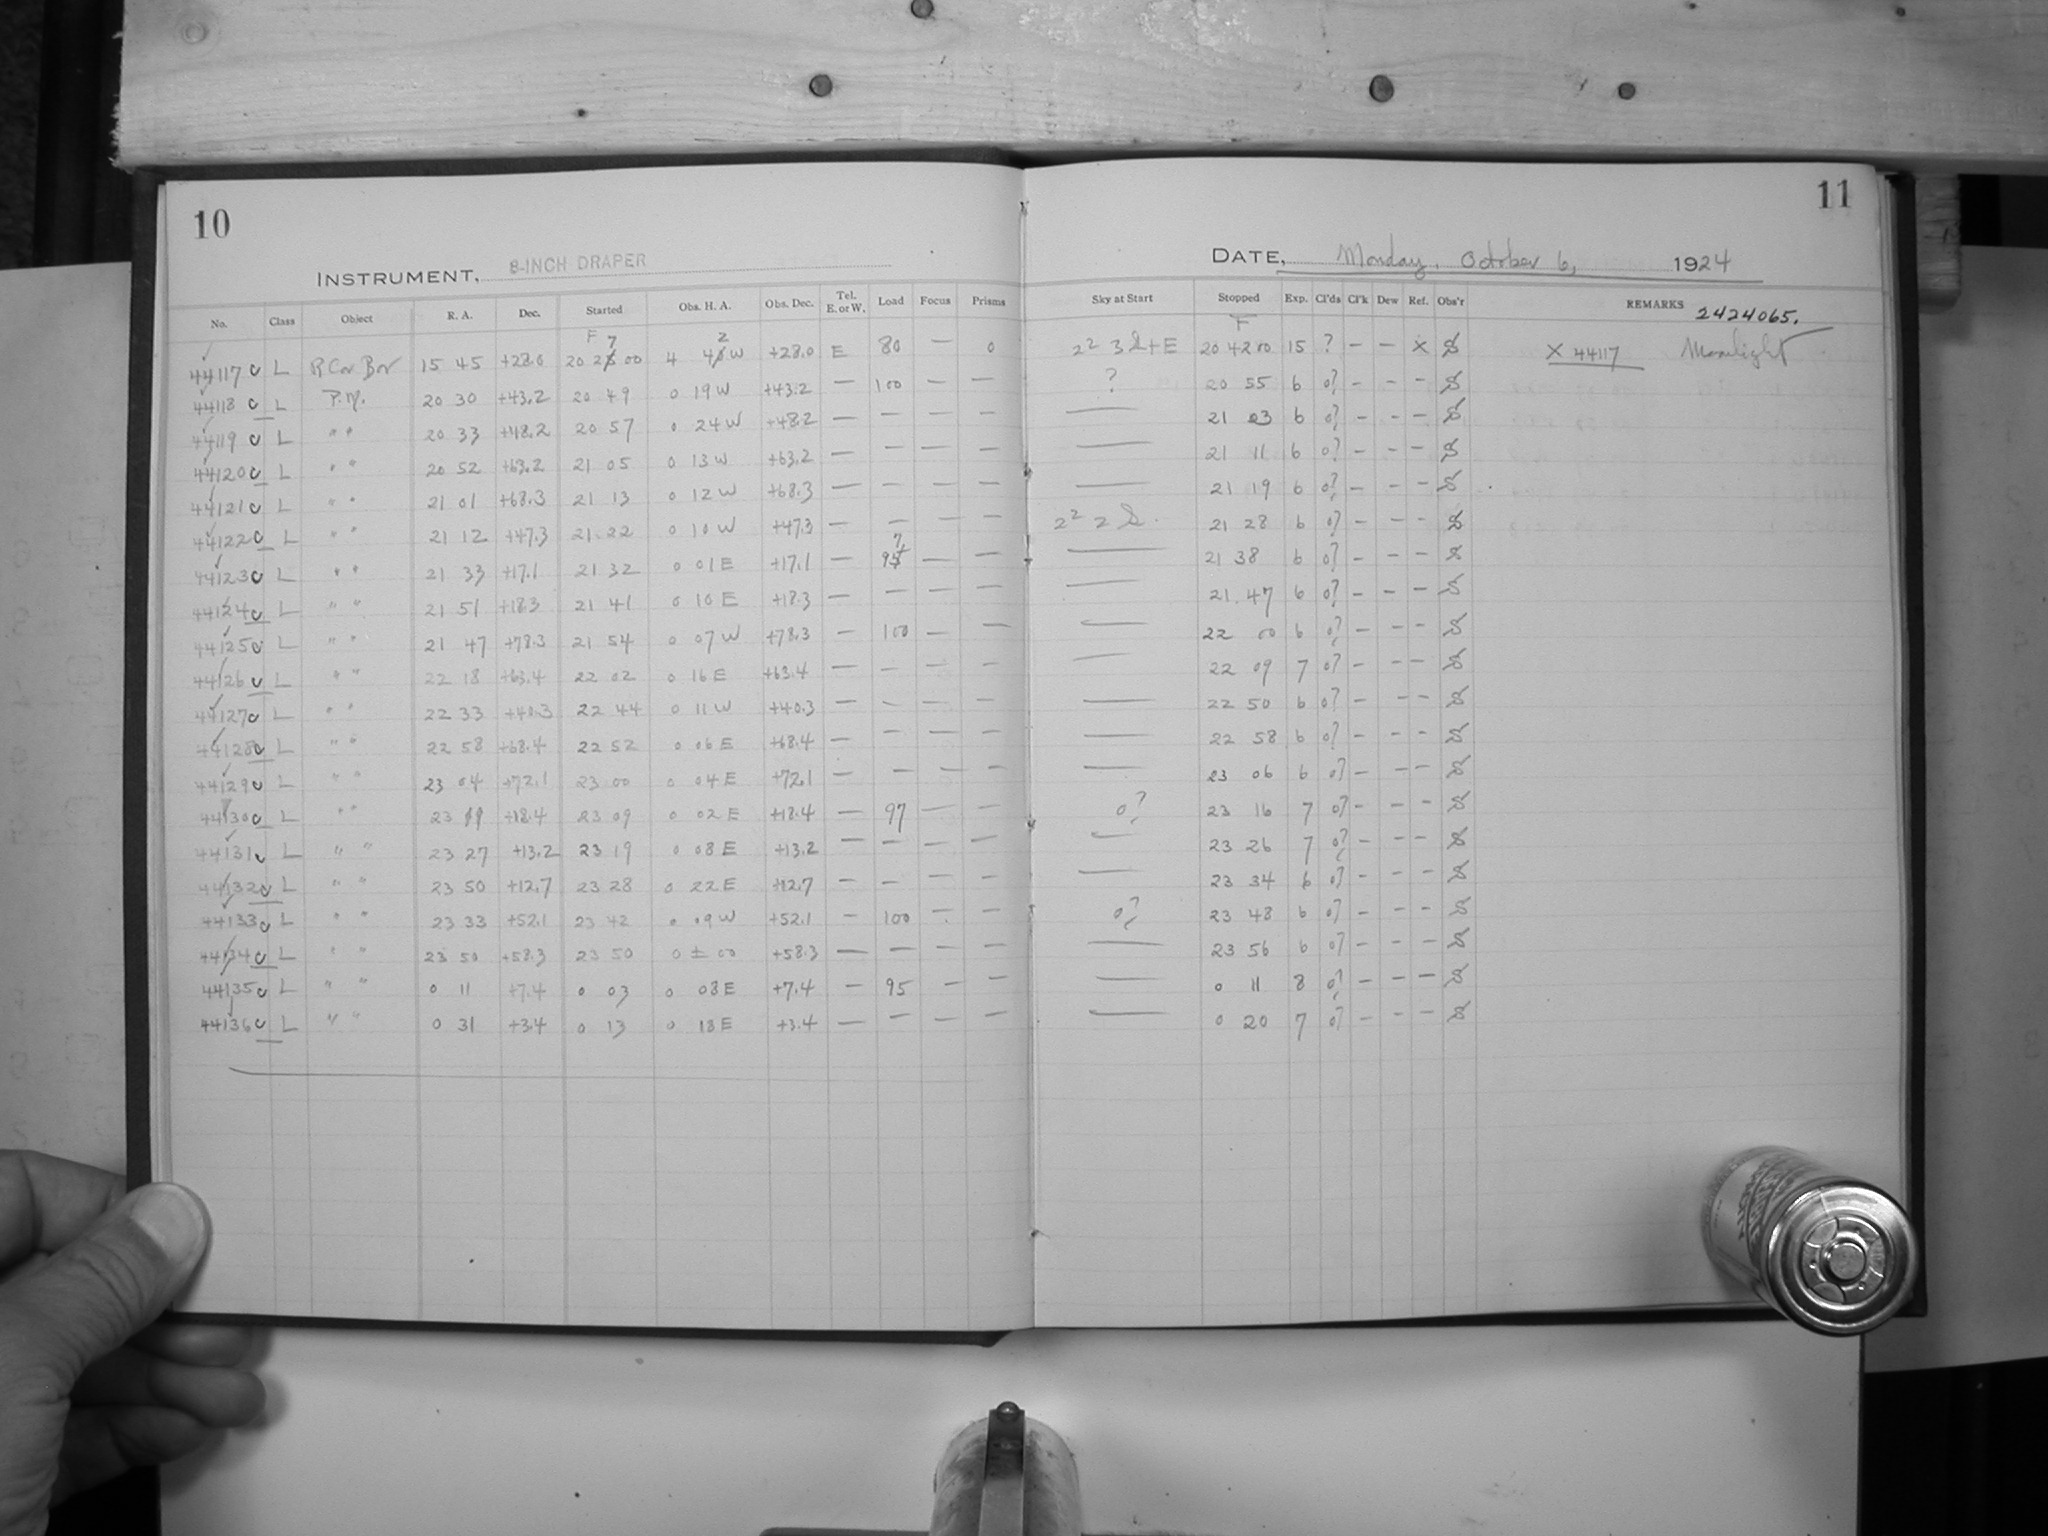 10
11
INSTRUMENT, 8-INCH DRAPER
DATE, Monday, October 6, 1924
No. Class Object R. A. Dec. Started Obs. H. A. Obs. Dec. Tel. E. or W. Load Focus Prisms Sky at Start Stopped Exp. Cl'ds Cl'k Dew Ref. Obs'r REMARKS 2424065.
F 7 2 F
44117 c L R Cor Bor 15 45 +28.0 20 2 00 4 4 W +28.0 E 80 — 0 2² 3 + E 20 42 00 15 ? – – X X 44117 Moonlight
44118 c L P.M. 20 30 +43.2 20 49 0 19 W +43.2 — 100 — — ? 20 55 6 0? – – –
44119 c L " " 20 33 +48.2 20 57 0 24 W +48.2 — — — — — 21 03 6 0? – – –
44120 c L " " 20 52 +63.2 21 05 0 13 W +63.2 — — — — — 21 11 6 0? – – –
44121 c L " " 21 01 +68.3 21 13 0 12 W +68.3 — — — — — 21 19 6 0? – – –
44122 c L " " 21 12 +47.3 21 22 0 10 W +47.3 — — — — 2² 2 21 28 6 0? – – –
7
44123 c L " " 21 33 +17.1 21 32 0 01 E +17.1 — 95 — — — 21 38 6 0? – – –
44124 c L " " 21 51 +18.3 21 41 0 10 E +18.3 — — — — — 21 47 6 0? – – –
44125 c L " " 21 47 +78.3 21 54 0 07 W +78.3 — 100 — — — 22 00 6 0? – – –
44126 c L " " 22 18 +63.4 22 02 0 16 E +63.4 — — — — — 22 09 7 0? – – –
44127 c L " " 22 33 +40.3 22 44 0 11 W +40.3 — — — — — 22 50 6 0? – – –
44128 c L " " 22 58 +68.4 22 52 0 06 E +68.4 — — — — — 22 58 6 0? – – –
44129 c L " " 23 04 +72.1 23 00 0 04 E +72.1 — — — — — 23 06 6 0? – – –
44130 c L " " 23 +18.4 23 09 0 02 E +18.4 — 97 — — 0? 23 16 7 0? – – –
44131 c L " " 23 27 +13.2 23 19 0 08 E +13.2 — — — — — 23 26 7 0? – – –
44132 c L " " 23 50 +12.7 23 28 0 22 E +12.7 — — — — — 23 34 6 0? – – –
44133 c L " " 23 33 +52.1 23 42 0 09 W +52.1 — 100 — — 0? 23 48 6 0? – – –
44134 c L " " 23 50 +58.3 23 50 0 ± 00 +58.3 — — — — — 23 56 6 0? – – –
44135 c L " " 0 11 +7.4 0 03 0 08 E +7.4 — 95 — — — 0 11 8 0? – – –
44136 c L " " 0 31 +3.4 0 13 0 18 E +3.4 — — — — — 0 20 7 0? – – –